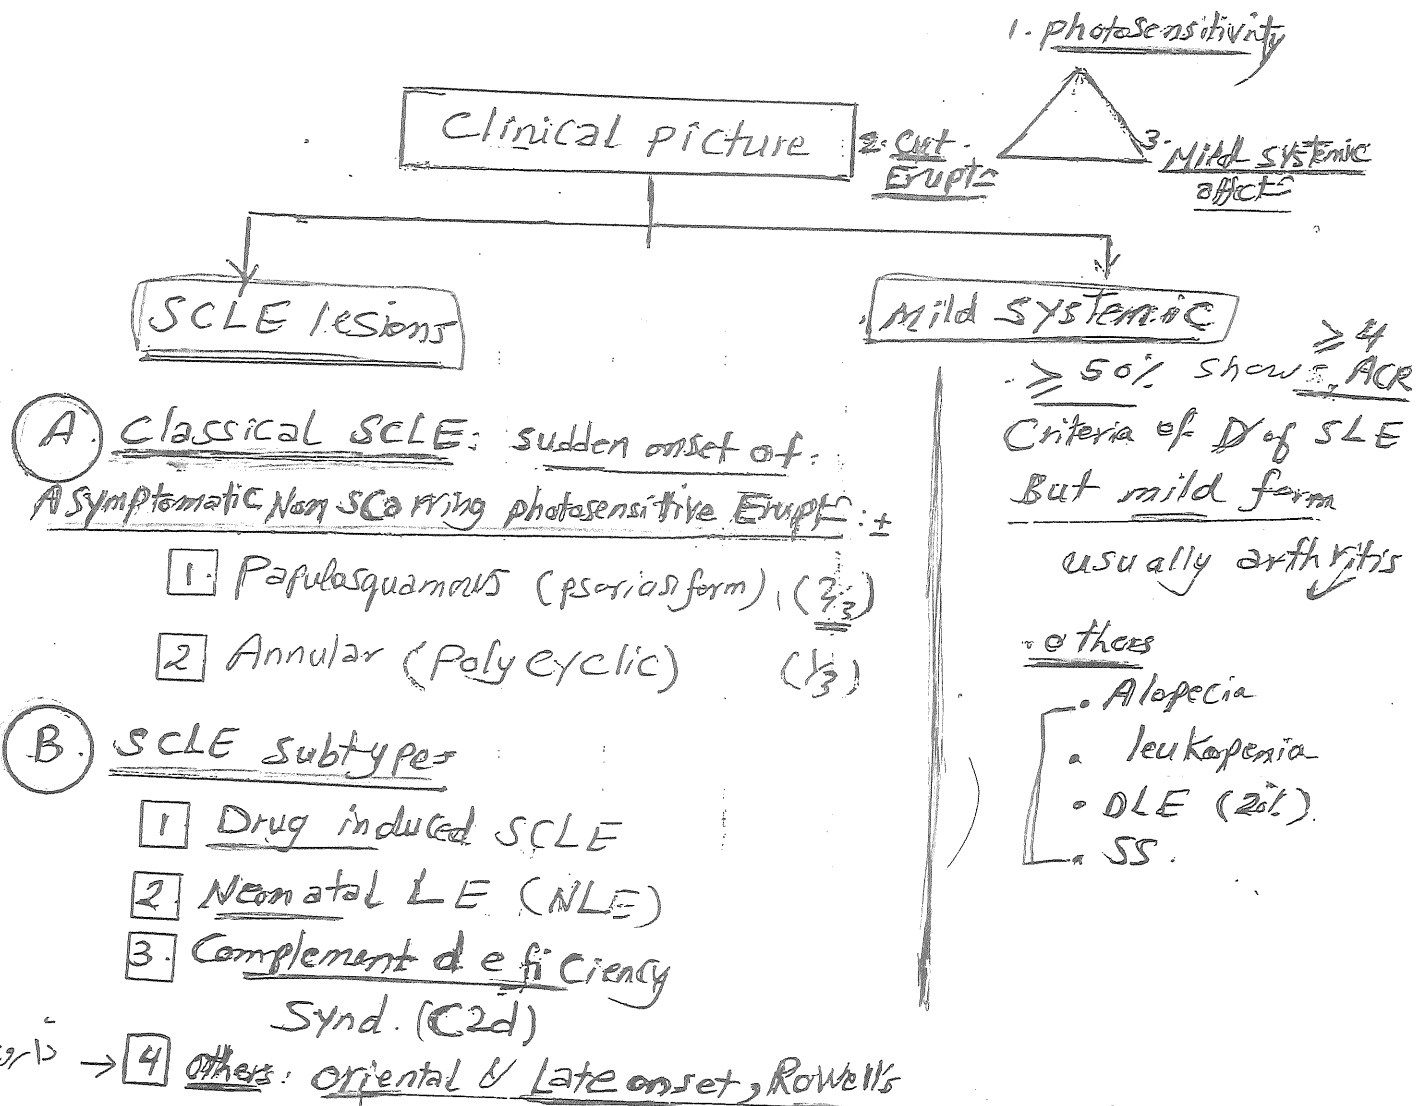 1. Photosensitivity
Clinical picture
2. Cut.
Erupt=
3. Mild systemic
affect=
SCLE lesions
Mild systemic
A. Classical SCLE: sudden onset of:
Asymptomatic, Non scarring photosensitive Erupt=: ±
1. Papulosquamous (psoriasiform), (2/3)
2 Annular (Polycyclic) (1/3)
B. SCLE subtypes
1 Drug induced SCLE
2. Neonatal LE (NLE)
3. Complement deficiency
Synd. (C2d)
→ 4 others: oriental & Late onset, Rowell's
≥ 4
. ≥ 50% shows, ACR
Criteria of D of SLE
But mild form
usually arthritis
. others
• Alopecia
• leukopenia
• DLE (20%).
• SS.